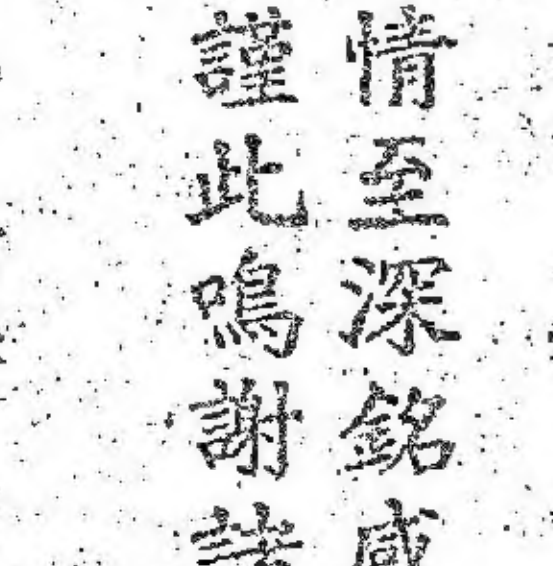 情至深銘感
謹此鳴謝